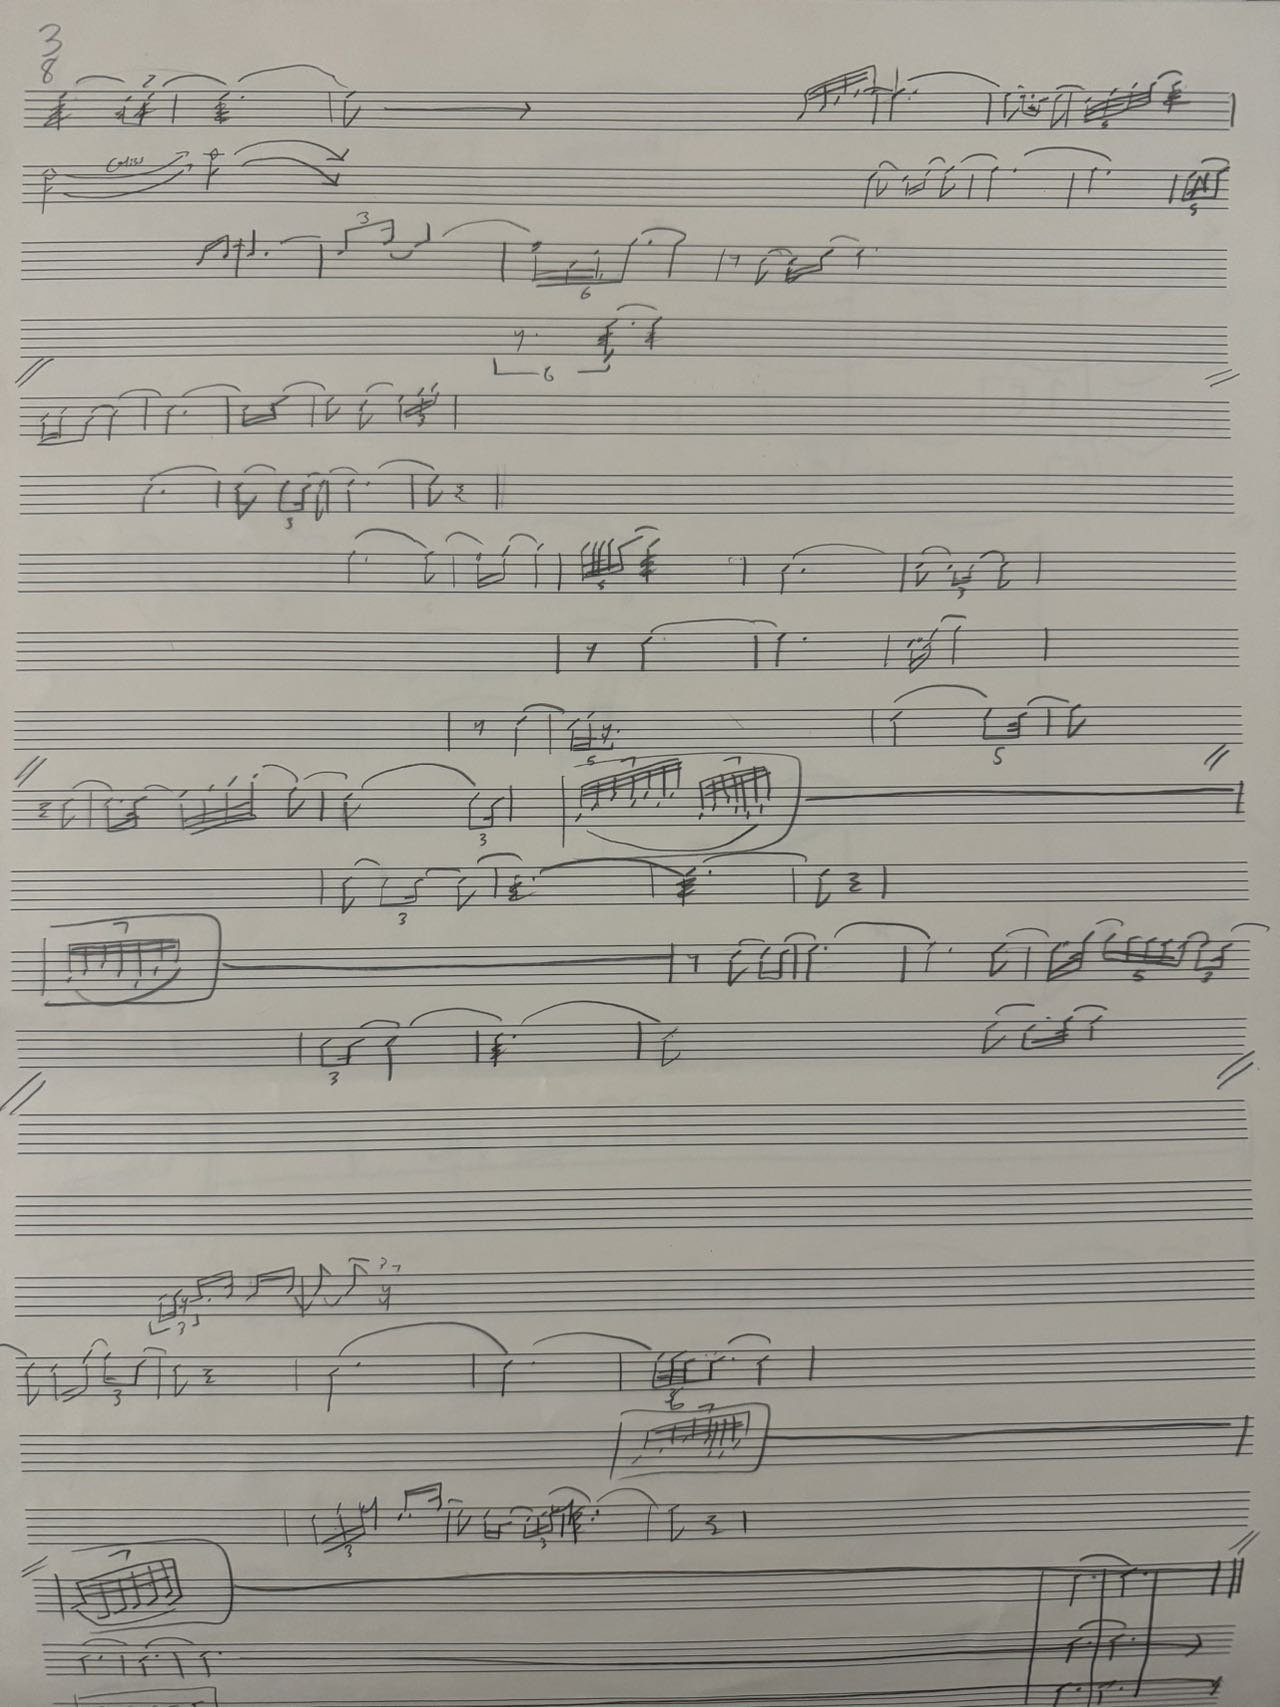 3
8
Gliss
3
5
6
6
3
3
5
3
5
5
7 7
3
3
7
5 3
3
3
3
7
3 3
7